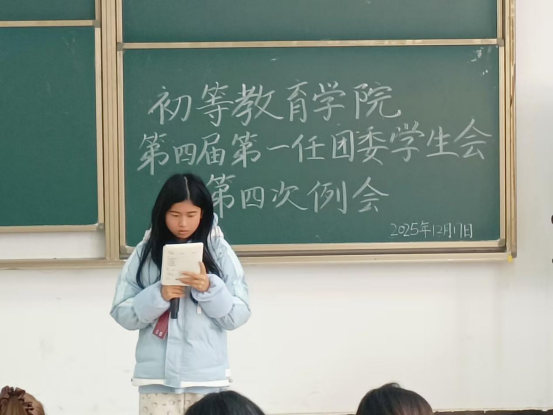 初等教育学院
第四届第一任团委学生会
第四次例会
2025年12月17日